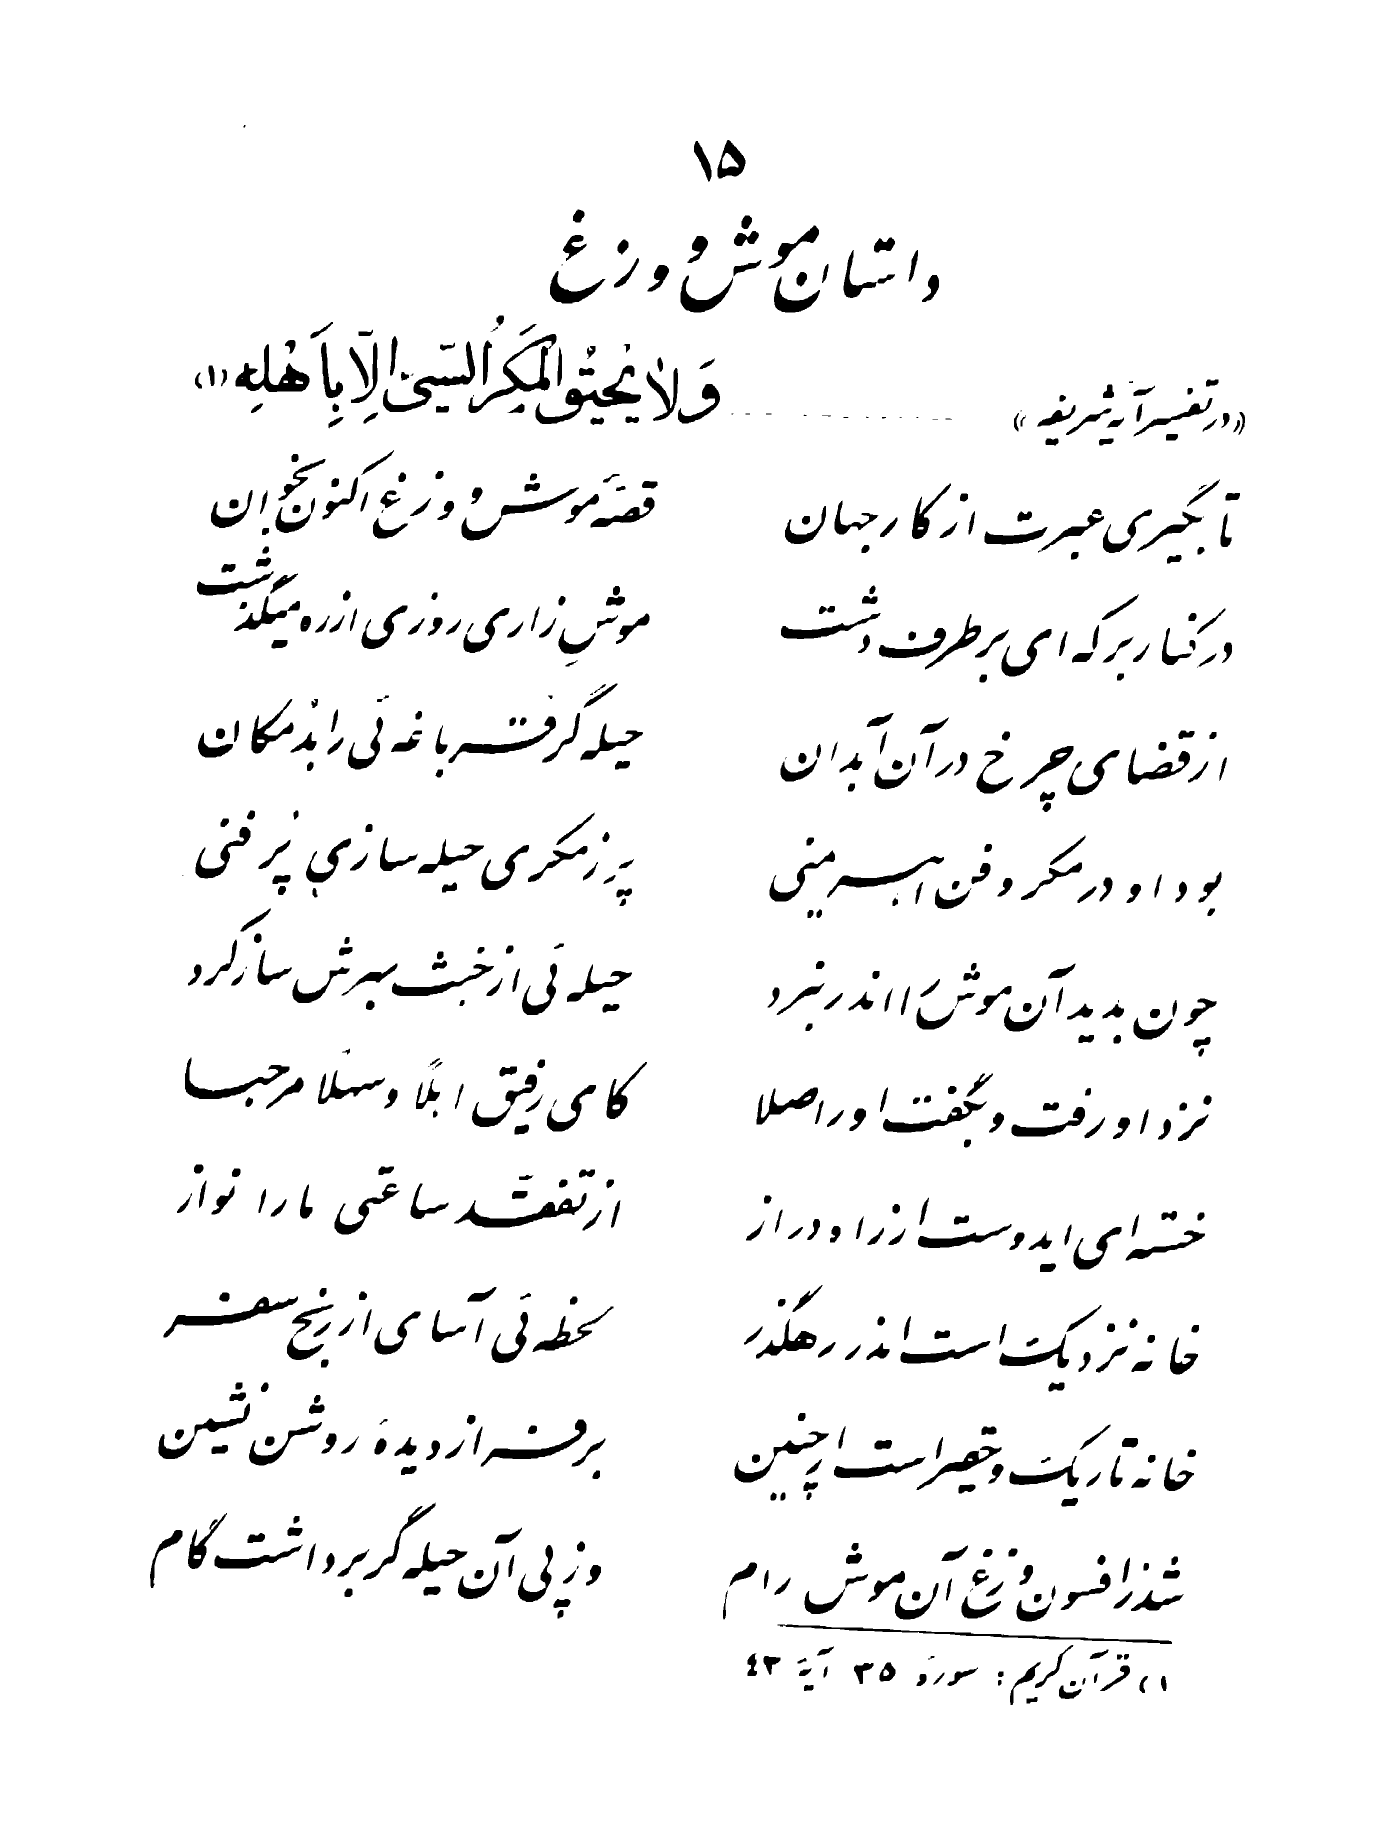 ۱۵
داستان موش و وزغ
«در تفسیر آیه شریفه» ........ وَلا یَحیقُ المَکرُ السَّیِّئُ اِلّا بِاَهْلِهِ (۱)
تا بگیری عبرت از کار جهان    قصّهٔ موش و وزغ اکنون بخوان
در کنار برکه‌ای بر طرف دشت    موشِ زاری روزی از ره میگذشت
از قضای چرخ در آن آبدان    حیله گر قرباغه ئی را بُد مکان
بود او در مکر و فن اهریمنی    پر ز مکری حیله سازی پُر فنی
چون بدید آن موش را اندر نبرد    حیله ئی از خبث بهرش ساز کرد
نزد او رفت و بگفت او را صلا    کای رفیق اهلًا و سهلًا مرحبا
خسته‌ای ایدوست از راه دراز    از تفقّد ساعتی ما را نواز
خانه نزدیک است اندر رهگذر    لحظه ئی آسای از رنج سفر
خانه تاریک و حقیر است ار چنین    بر فراز دیدهٔ روشن نشین
شد ز افسون وزغ آن موش رام    وز پی آن حیله گر برداشت گام
۱) قرآن کریم: سورهٔ ۳۵ آیهٔ ۴۳